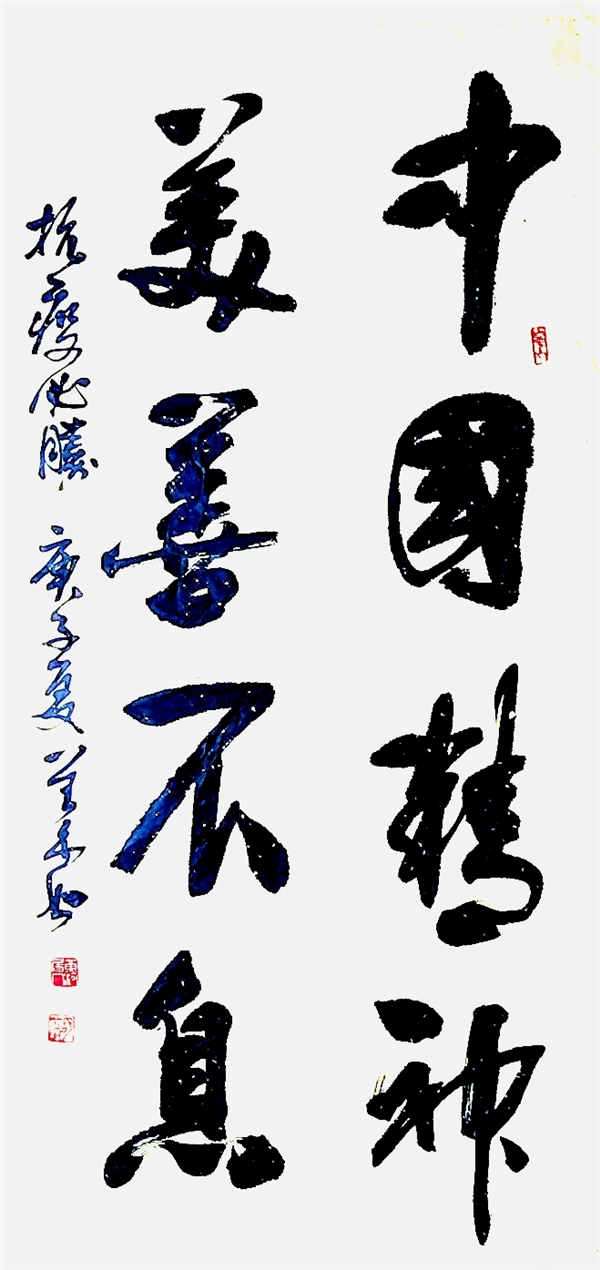 中國精神
美善不息
抗疫必勝 庚子夏